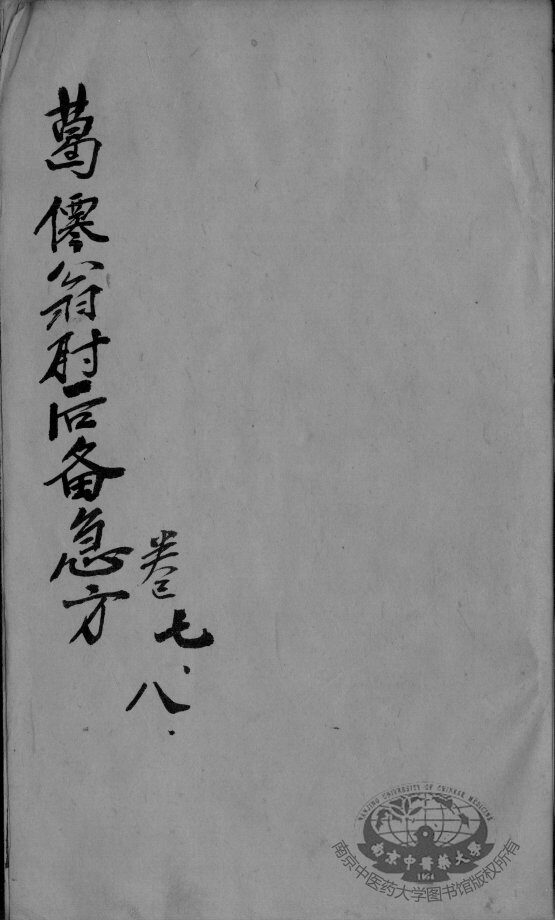 葛僊翁肘后备急方
卷七、八.
NANJING UNIVERSITY OF CHINESE MEDICINE
南京中醫藥大學
1954
南京中医药大学图书馆版权所有